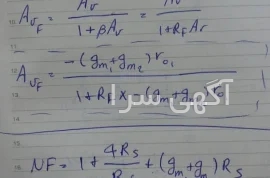 A_{v_F} = \frac{A_v}{1+βA_v} = \frac{A_v}{1+R_F A_v}
A_{v_F} = \frac{-(g_{m_1}+g_{m_2}) r_{o_1}}{1+R_F × -(g_{m_1}+g_{m_2}) r_o}
آگهی سرا
NF = 1+ \frac{4R_s}{R} + (g_m+g_m) R_s